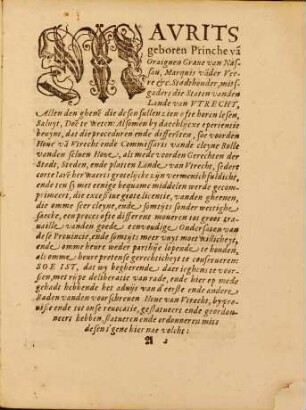 MAVRITS
geboren Prinche vā
Oraignen Graue van Nas-
sau, Marquis vāder Vee-
re &c. Stadthouder, mitf-
gaders die Staten vanden
Lande van VTRECHT,
Allen den ghenē die desen sullen zien ofte horen lesen,
Saluyt, Doēte Wetem Alsomen by daechlycxe eperientie
beuynt, dat die proceduren ende differēten, soe voorden
Houe vā Vtrecht ende Commissaris vande cleyne Rolle
vanden seluen Houe, als mede voorden Gerechten der
Stadt, Steden, ende platten Lande van Vtrecht, sedert
corte Iarē herwaerts grotelycx zyn vermenichfuldicht,
ende ten sy met eenige bequame middelen werde gecom-
primeert, die excessiue grote licentie, vanden gheenen,
die omme seer cleyne, ende somtyts sonder wettighe
saecke, een proces ofte different moueren tot groot gra-
uatie vanden goede eenvoudige Ondersaten van
dese Prouincie, ende somtyts meer vuyt moetwillicheyt,
ende omme heure weder parthije lopende te houden,
als omme heure pretense gerechticheyt te conserueren:
SOE IST, dat wy begherende daer ieghens te voor-
sien, met rype deliberatie van rade, ende hier op mede
gehadt hebbende het aduys van d'eerste ende andere
Raden vanden voorschreuen Houe van Vtrecht, by pro-
uisie ende tot onse reuocatie, gestatueert ende geordon-
neert hebben, statueren ende ordonneren mits
desen 'tgene hier nae volcht:
A